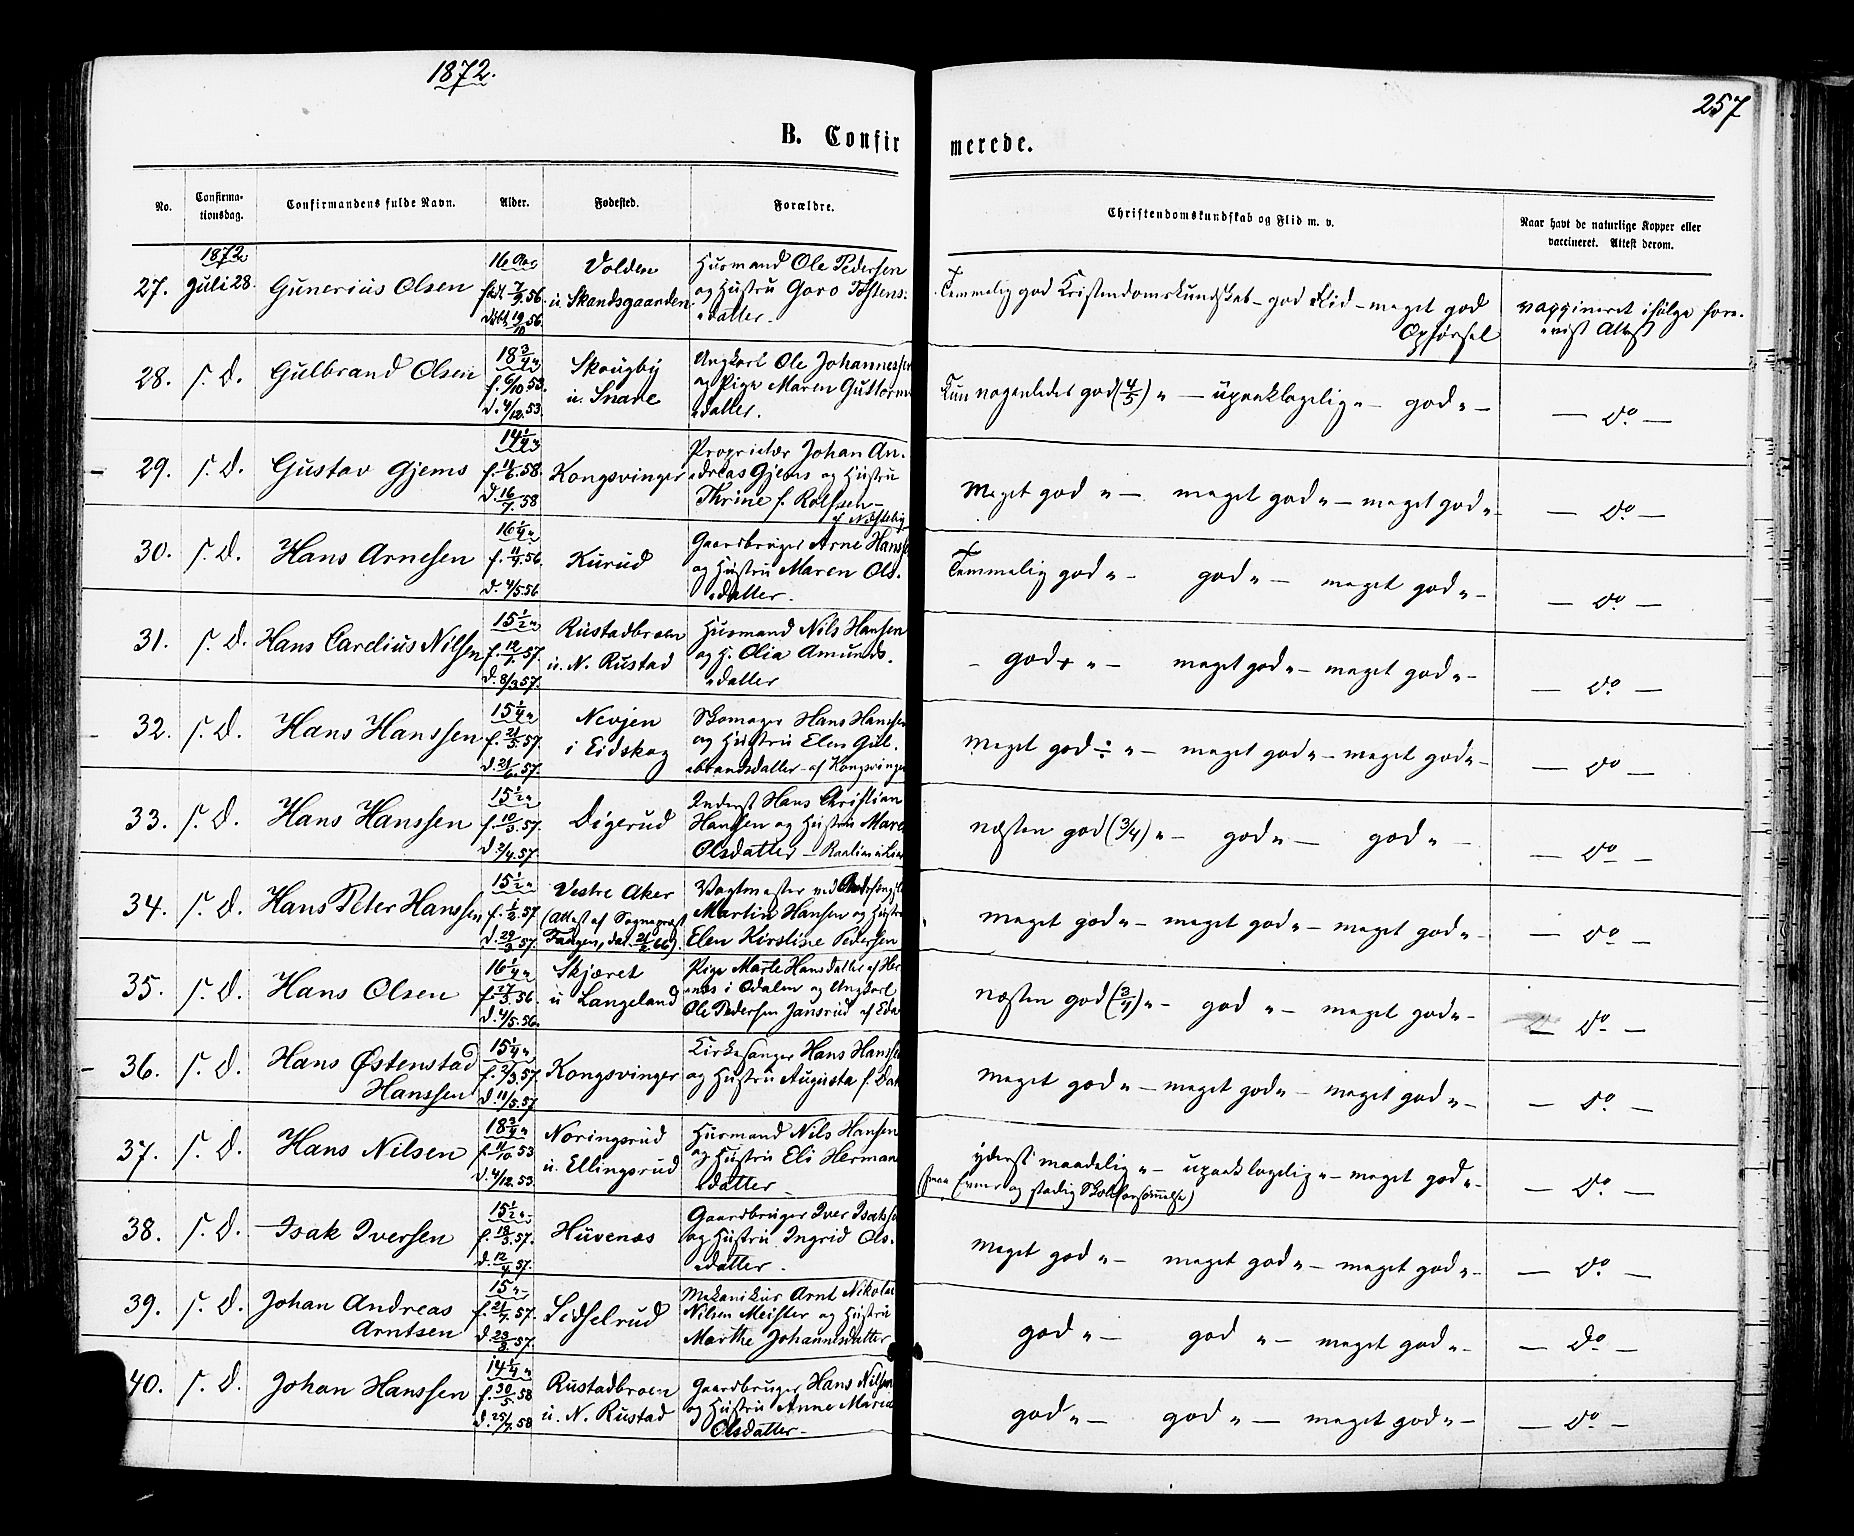 1872.
257
B. Confir merede.
No. Confirmationsdag. Confirmandens fulde Navn. Alder. Fødested. Forældre. Christendomskundskab og Flid m. v. Naar havt de naturlige Kopper eller vaccineret. Attest derom.
27. 1872 Juli 28. Gunerius Olsen 16 Født 7/9.56. Døbt 19/10 56. Volden
u. Skandsgaarden. Husmand Ole Pedersen
og Hustru Goro Tostens-
datter. Temmelig god Kristendomskundskab - god Flid - meget god
Opførsel vaccineret ifølge fore-
vist Attest
28. s. d. Gulbrand Olsen 18 3/4 f. 6/10.53. d. 4/12.53. Skougby
u. Snare Ungkarl Ole Johannessen
og Pige Maren Guttorms-
datter. Kun nogenledes god (4/5) " - upaaklagelig " - god " - - do. -
29. s. d. Gustav Gjems 14 1/4 d. 16/7.58 Kongsvinger Proprietær Johan An-
dreas Gjems og Hustru
Thrine f. Rolfsen - Meget god " - meget god " - meget god " - - do -
30. s. d. Hans Arnesen 16 1/4 f. 11/4.56. d. 4/5.56 Kurud Gaardbruger Arne Hanss
og Hustru Maren Ols-
datter. Temmelig god " - god " - meget god " - - do -
31. s. d. Hans Carelius Nilsen 15 1/2 f. 12/1.57. d. 8/3 57. Rustadbroen
u. N. Rustad Husmand Nils Hansen
og H. Olia Amunds-
datter - god + " - meget god " - meget god " - - do -
32. s. d. Hans Hanssen 15 1/4 f. 21/5.57. d. 21/6.57. Nevjen
i Eidskog Skomager Hans Hanssen
og Hustru Elen Gul-
brandsdatter - af Kongsvinger meget god ÷ " - meget god " - meget god " - - do -
33. s. d. Hans Hanssen 15 1/2 f. 10/3.57. d. 2/4.57. Digerud Inderst Hans Christian
Hansen og Hustru
Olsdatter - næsten god (3/4) " - god " - god " - - do. -
34. s. d. Hans Peter Hanssen 15 1/2 f. 1/2.57 d. 29/3.57. Vestre Aker
(Attest af Sognepræst
Fangen, dat. 21/2 66). Vagtmester ved
Martin Hansen og Hustru
Elen Kirstine Pedersen meget god " - meget god " - meget god " - - do. -
35. s. d. Hans Olsen 16 1/4 f. 27/3.56. d. 4/5.56. Skjæret
u Langeland Pige Marte Hansdatter af Her
næs i Odalen og Ungkarl
Ole Pedersen Jansrud af Eda næsten god (3/4) " - god " - meget god " - - do. -
36. s. d. Hans Østenstad
Hanssen 15 1/4 f. 2/3.57. d. 11/5.57 Kongsvinger Kirkesanger Hans Hanss
og Hustru Augusta f. Da meget god " - meget god " - meget god " - - do. -
37. s. d. Hans Nilsen 18 3/4 f. 11/10 53 d. 4/12.53. Noringsrud
u. Ellingsrud Husmand Nils Hansen
og Hustru Eli Herman
datter - yderst maadelig " - upaaklagelig " - meget god " - - do. -
og stadig Skoleforsømmelse)
38. s. d. Isak Iversen 15 1/2 f. 18/3.57. d. 12/4 57. Huvenæs Gaardbruger Iver Isakss
og Hustru Ingrid Ols-
datter. meget god " - meget god " - meget god " - - do. -
39. s. d. Johan Andreas
Arntsen 15 f. 21/7.57. d. 23/8.57. Sidselrud Mekanikus Arnt Nikolai
Nilsen Meister og Hustru
Marthe Johannesdatter god " - god " - meget god " - - do -
40. s. d. Johan Hanssen 14 1/4 f. 30/5.58 d. 25/7.58 Rustadbroen
u. N. Rustad Gaardbruger Hans Nilsen
og Hustru Anne Maria
Olsdatter - god " - god " - meget god " - - do. -